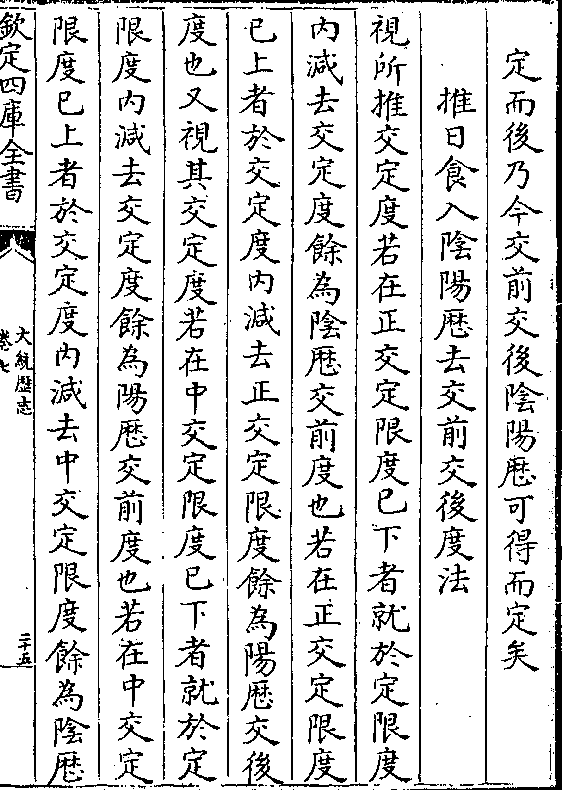 定而後乃今交前交後陰陽厯可得而定矣
推日食入陰陽厯去交前交後度法
視所推交定度若在正交定限度已下者就於定限度
内減去交定度餘為陰厯交前度也若在正交定限度
已上者於交定度内減去正交定限度餘為陽厯交後
度也又視其交定度若在中交定限度已下者就於定
限度内減去交定度餘為陽厯交前度也若在中交定
限度已上者於交定度内減去中交定限度餘為陰厯
欽定四庫全書
大統厯志
卷七
二十五